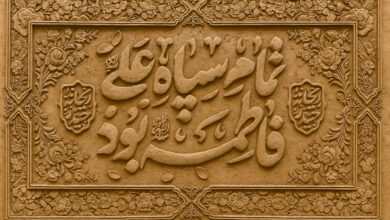 تمامِ سپاهِ علی
فاطمه بود